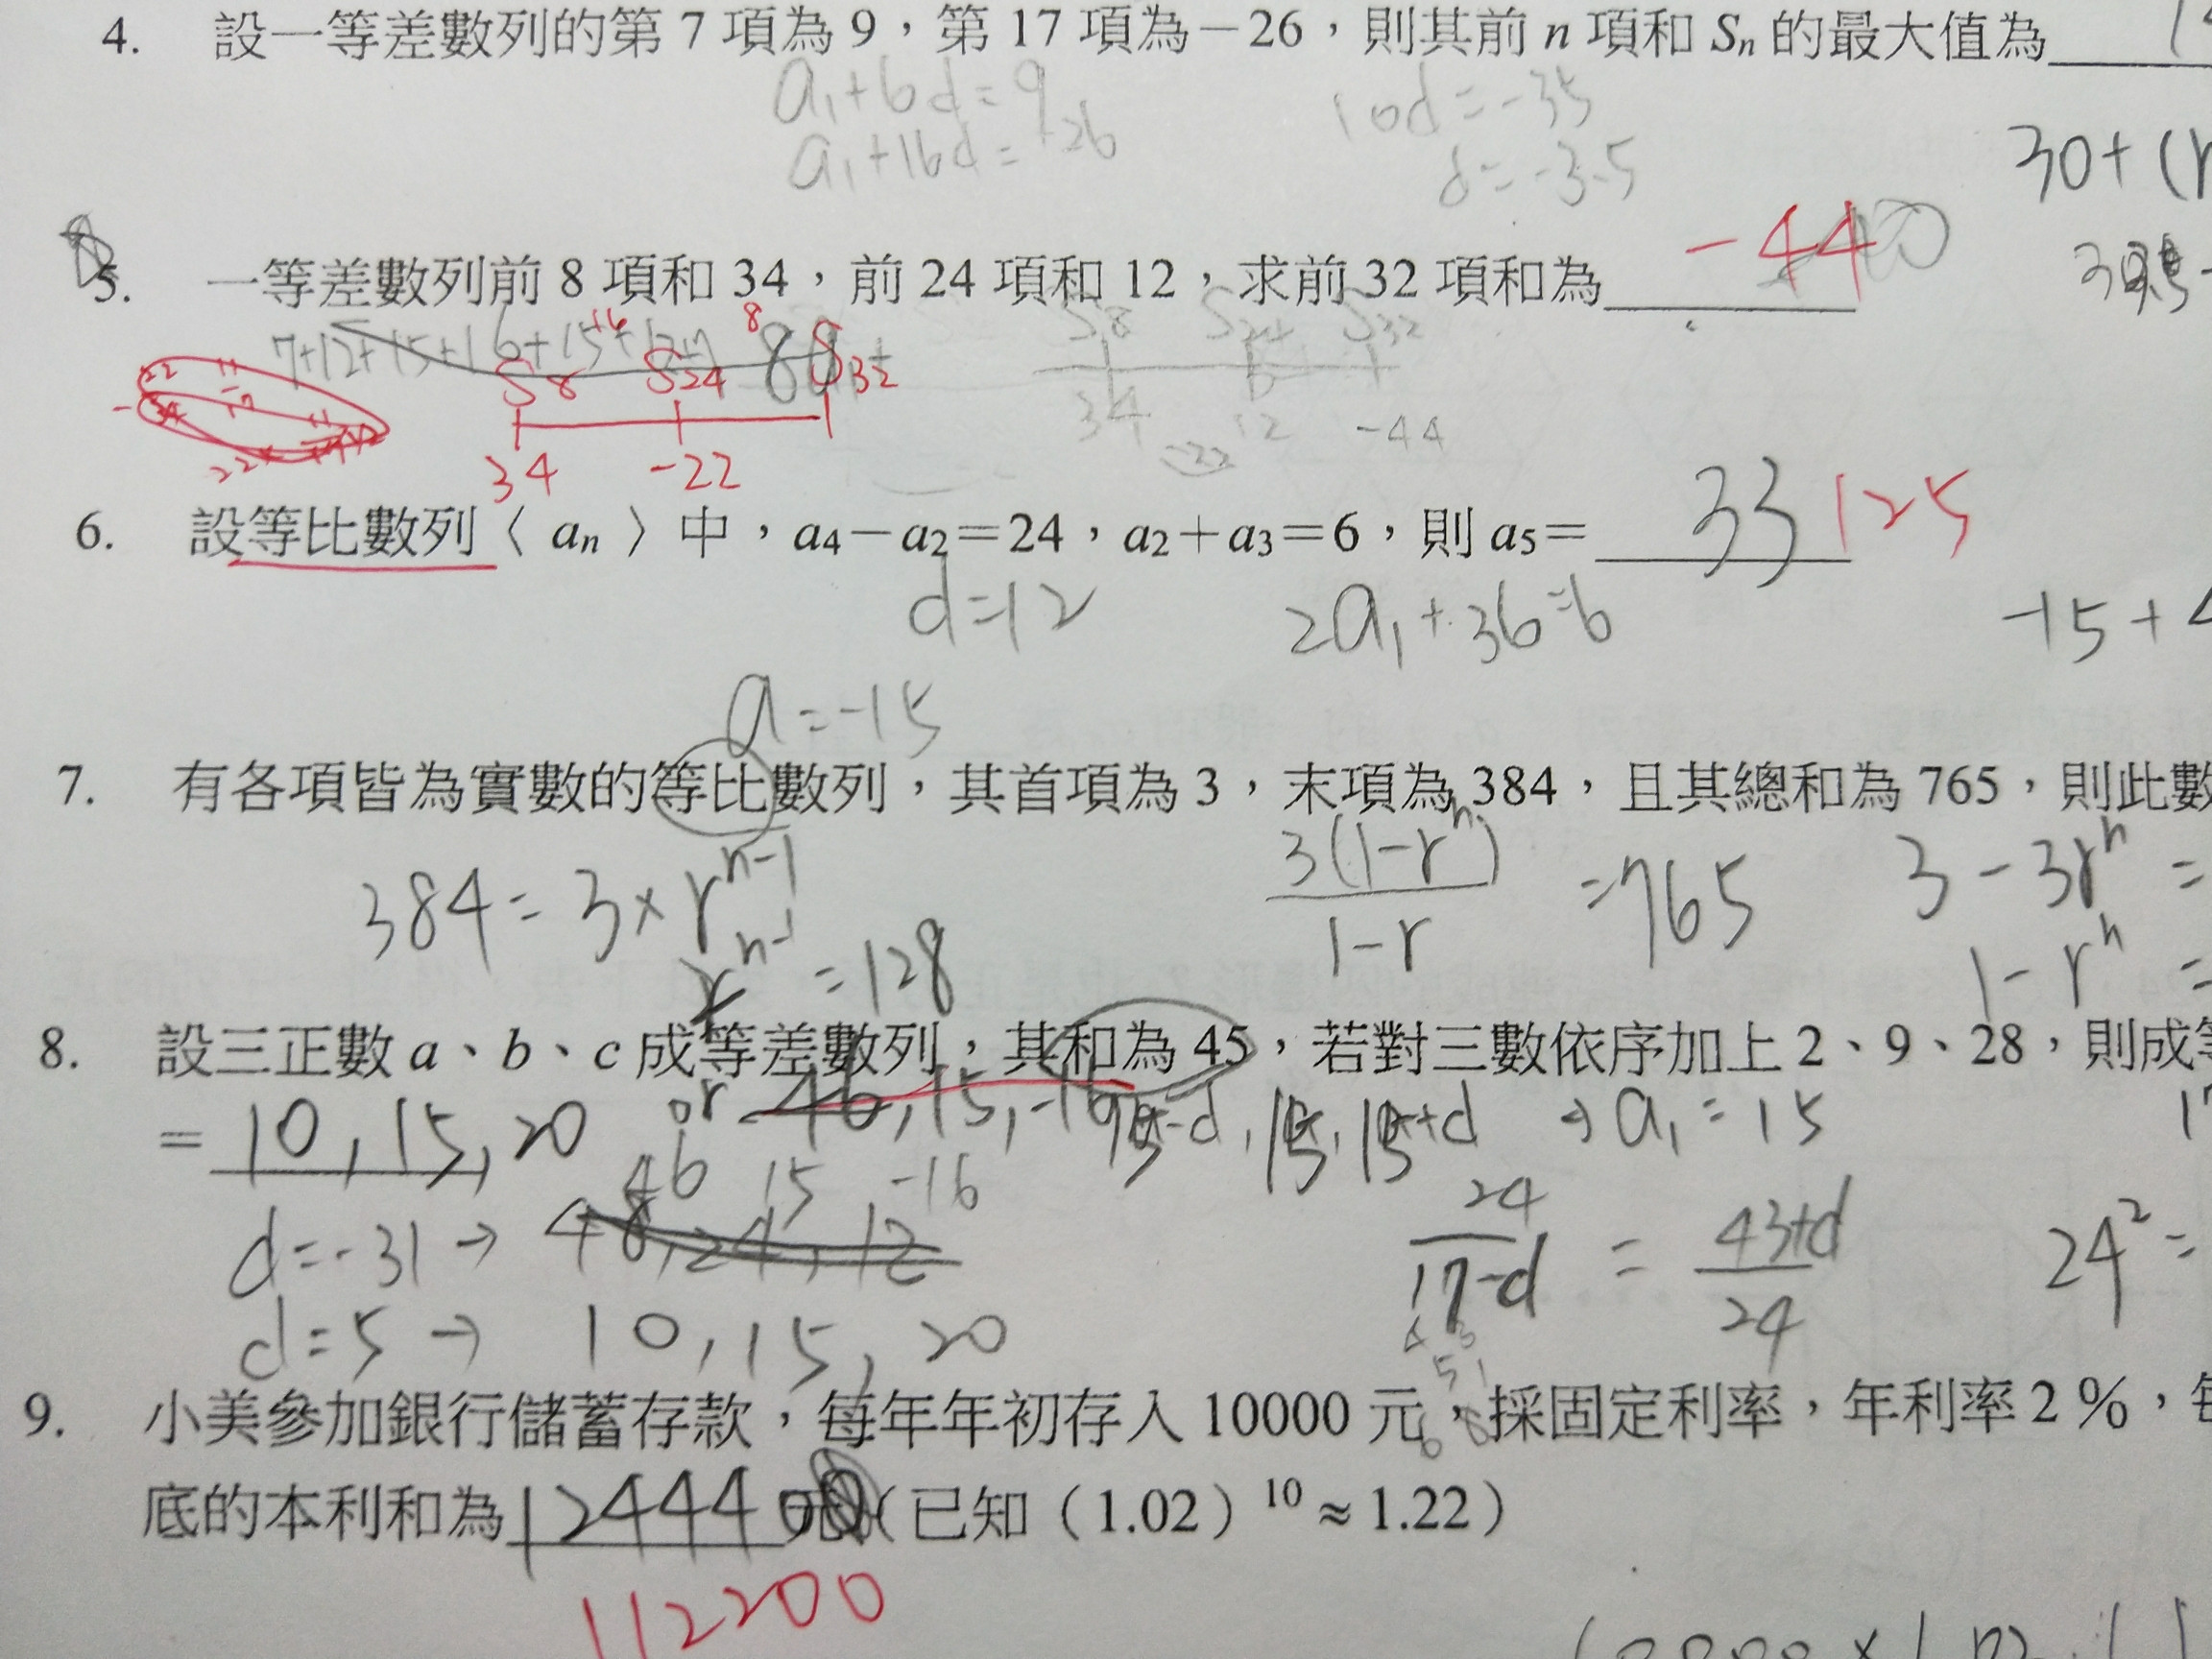 4. 設一等差數列的第 7 項為 9，第 17 項為－26，則其前 n 項和 Sn 的最大值為
a₁+6d=9 10d=-35
a₁+16d=-26 d=-3.5
30+(
5. 一等差數列前 8 項和 34，前 24 項和 12，求前 32 項和為 -44
7+12+15+16+15+12+7
S8 S24 S32
34 12 -44
-22
S8 S24 S32
34 -22
6. 設等比數列〈 an 〉中，a4－a2＝24，a2＋a3＝6，則 a5＝ 33 125
d=12 2a₁+36=6
-15+4
a=-15
7. 有各項皆為實數的等比數列，其首項為 3，末項為 384，且其總和為 765，則此數
384=3×rⁿ⁻¹ 3(1-rⁿ)/1-r =765 3-3rⁿ=
rⁿ⁻¹=128 1-rⁿ=
8. 設三正數 a、b、c 成等差數列，其和為 45，若對三數依序加上 2、9、28，則成等
＝ 10,15,20 or 46,15,-16 15-d,15,15+d → a₁=15
46 15 -16
d=-31→ 48,24,12 24/17-d = 43+d/24 24²=
d=5→ 10,15,20
9. 小美參加銀行儲蓄存款，每年年初存入 10000 元，採固定利率，年利率 2％，每
底的本利和為 124440 元(已知（1.02）10≈1.22）
112200